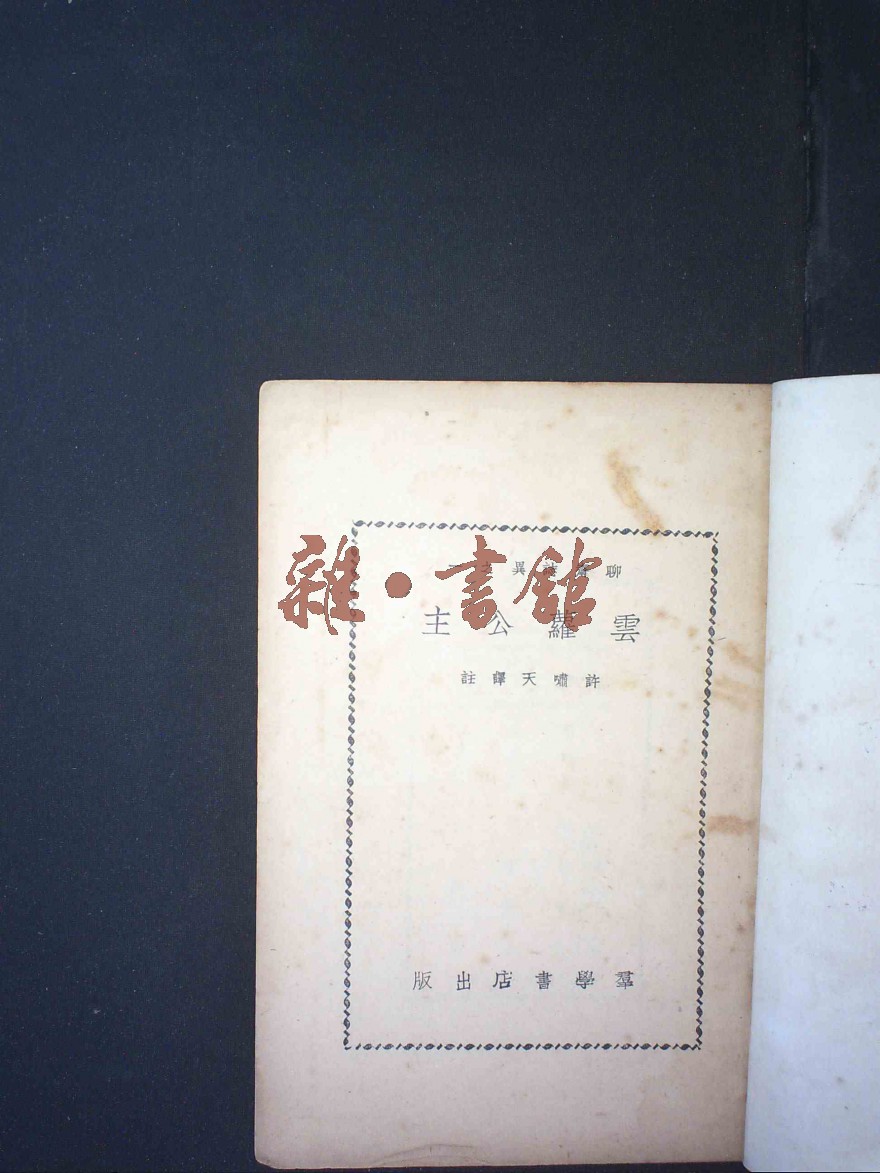 聊齋誌異之一
雲蘿公主
許嘯天譯註
羣學書店出版
雜·書館